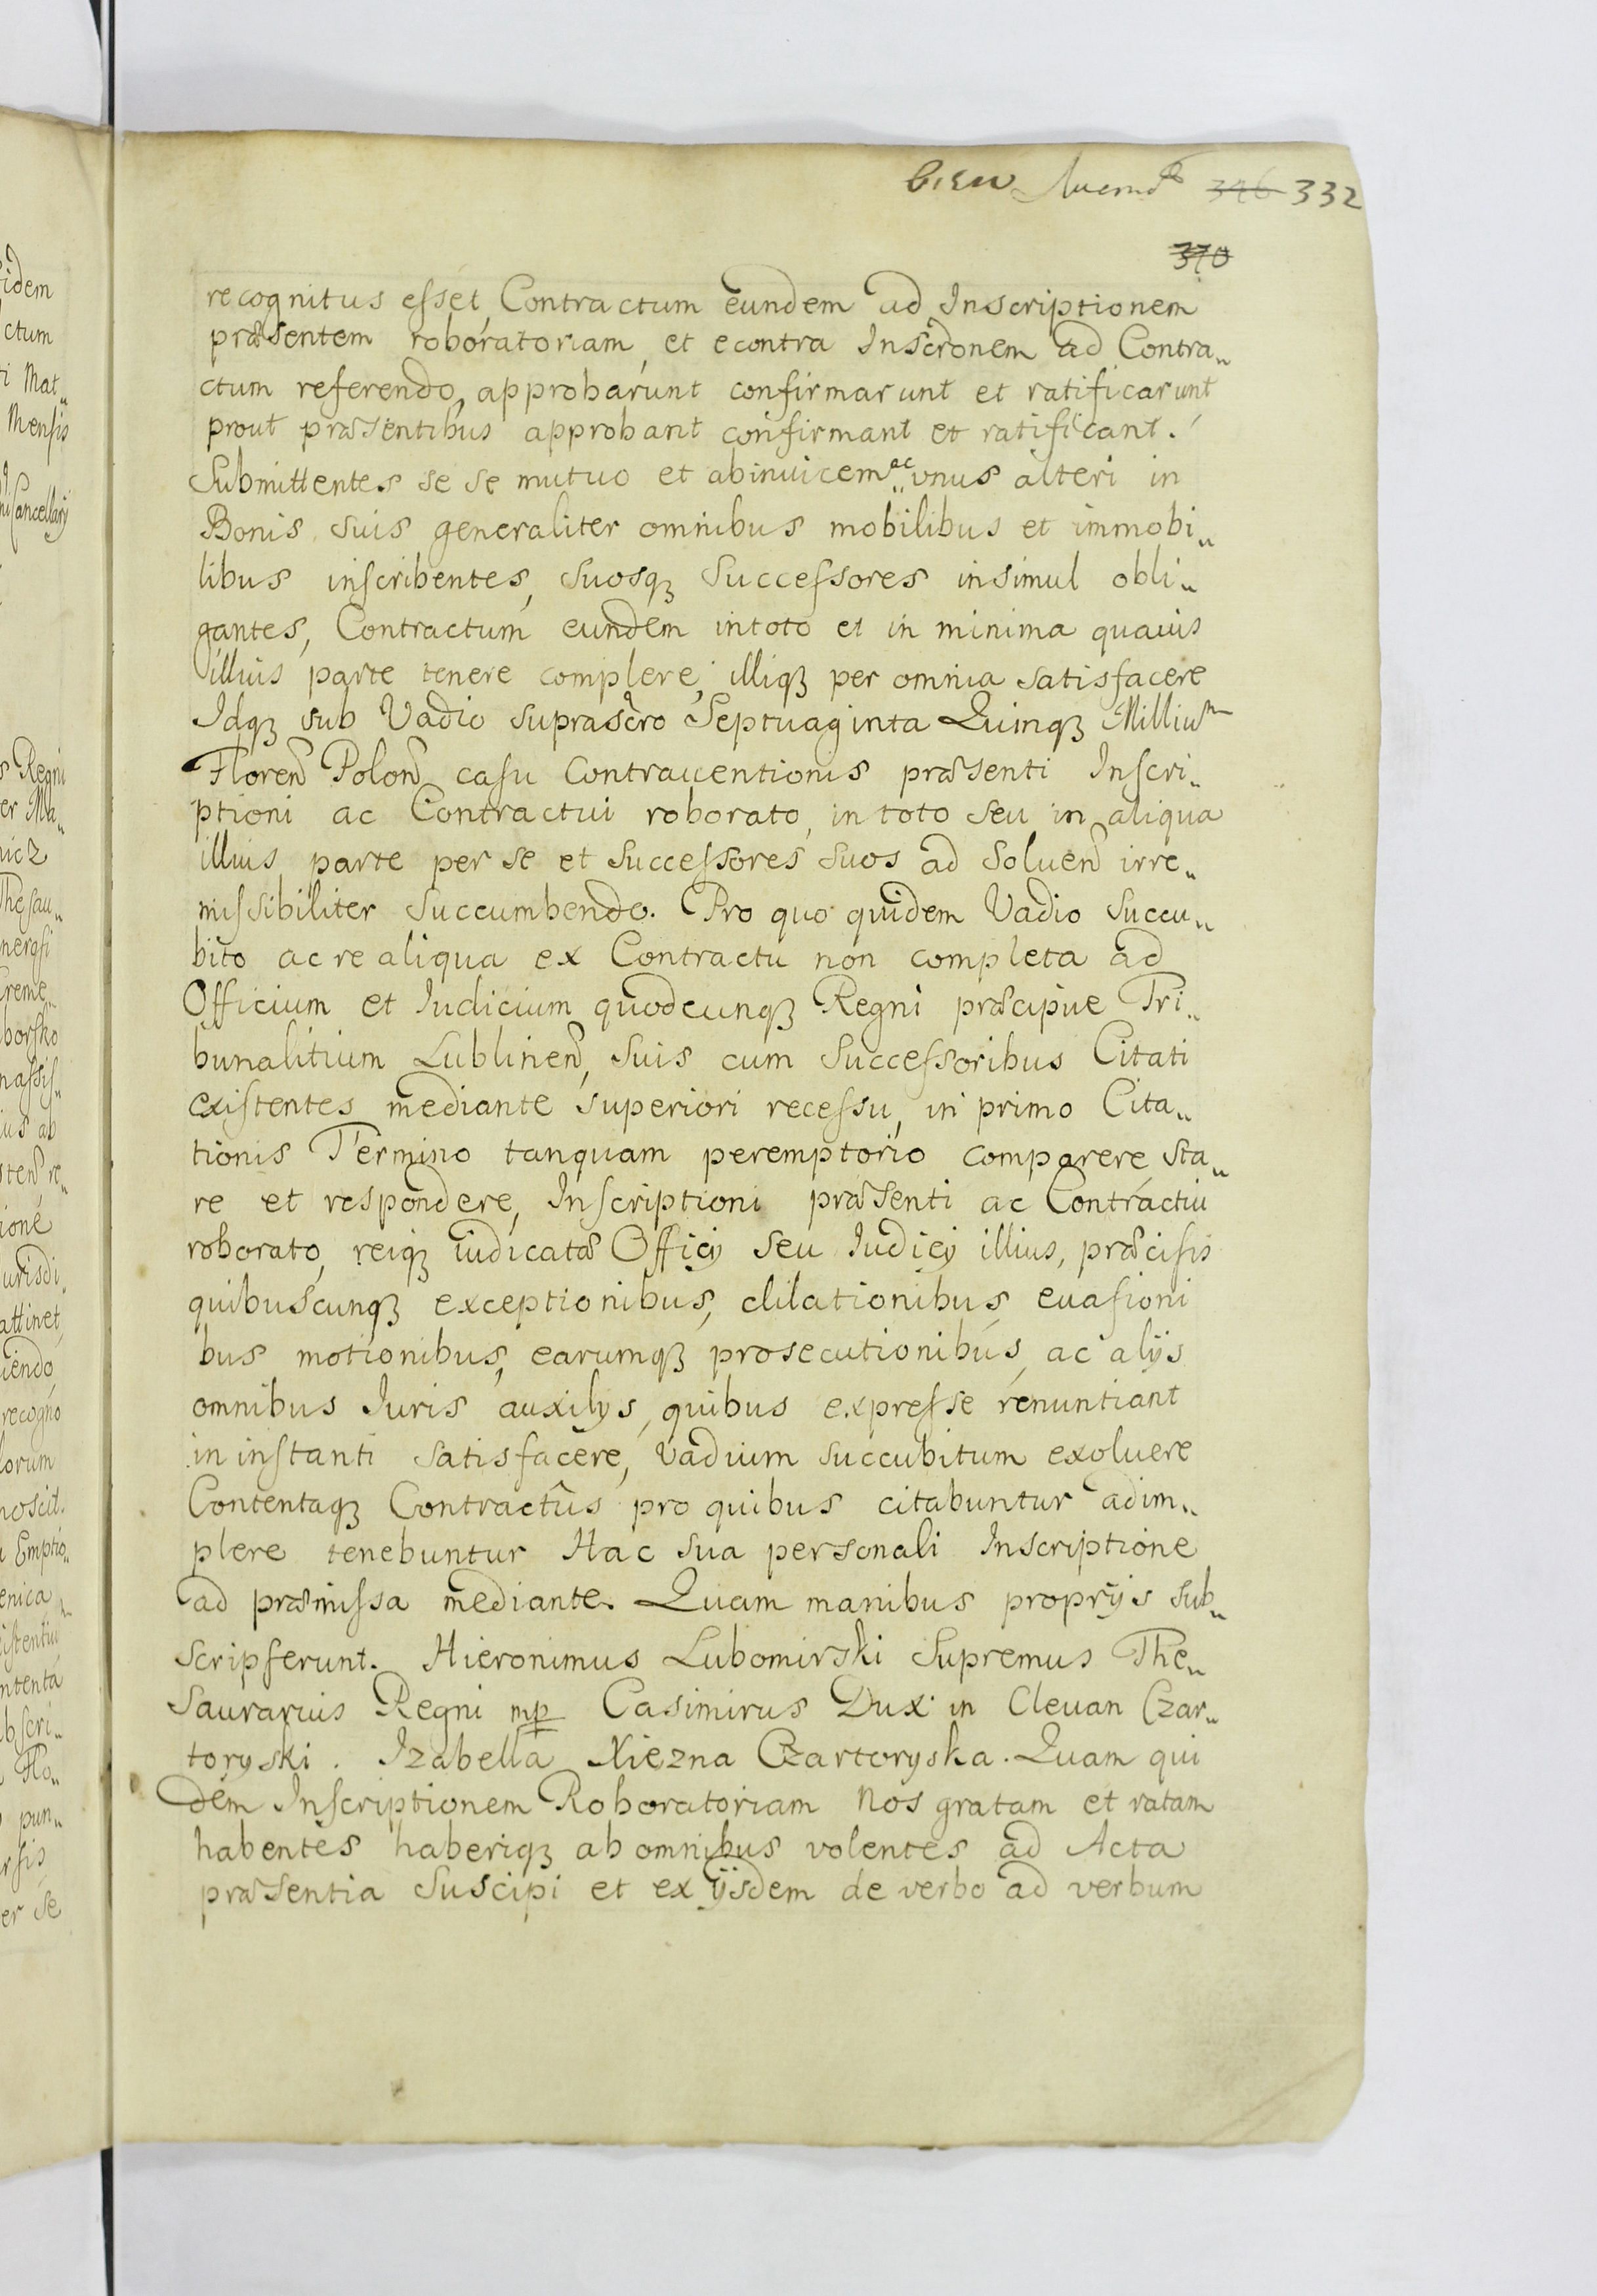 332
370
recognitus esset, Contractum eundem ad Inscriptionem
præsentem roboratoriam, et econtra Inscronem ad Contra„
ctum referendo, approbarunt confirmarunt et ratificarunt
prout præsentibus approbant confirmant et ratificant.
Submittentes se se mutuo et abinuicem ac vnus alteri in
Bonis suis generaliter omnibus mobilibus et immobi„
libus inscribentes, suosqꝫ Successores insimul obli„
gantes, Contractum eundem intoto et in minima quauis
illius parte tenere complere, illiqꝫ per omnia satisfacere
Idqꝫ sub Vadio suprascro Septuaginta Quinqꝫ Millium
Floren Polon casu Contrauentionis præsenti Inscri„
ptioni ac Contractui roborato, in toto seu in aliqua
illius parte per se et Successores suos ad Soluen irre„
missibiliter Succumbendo. Pro quo quidem Vadio Succu„
bito ac re aliqua ex Contractu non completa ad
Officium et Iudicium quodcunqꝫ Regni præcipue Tri„
bunalitium Lublinen, suis cum Successoribus Citati
existentes mediante superiori recessu, in primo Cita„
tionis Termino tanquam peremptorio comparere, sta„
re et respondere, Inscriptioni præsenti ac Contractui
roborato, reiqꝫ iudicatæ Officy seu Iudicy illius, præcisis
quibuscunqꝫ exceptionibus, dilationibus, euasioni
bus motionibus, earumqꝫ prosecutionibus, ac alijs
omnibus Iuris auxilys, quibus expresse renuntiant
in instanti satisfacere, Vadium succubitum exoluere
Contentaqꝫ Contractûs pro quibus citabuntur adim„
plere tenebuntur Hac sua personali Inscriptione
ad præmissa mediante. Quam manibus proprijs sub„
scripserunt. Hieronimus Lubomirski Supremus The„
Saurarius Regni mp Casimirus Dux in Cleuan Czar„
toryski. Izabella Xiezna Czartoryska. Quam qui
dem Inscriptionem Roboratoriam nos gratam et ratam
habentes haberiqꝫ ab omnibus volentes ad Acta
præsentia Suscipi et ex ijsdem de verbo ad verbum